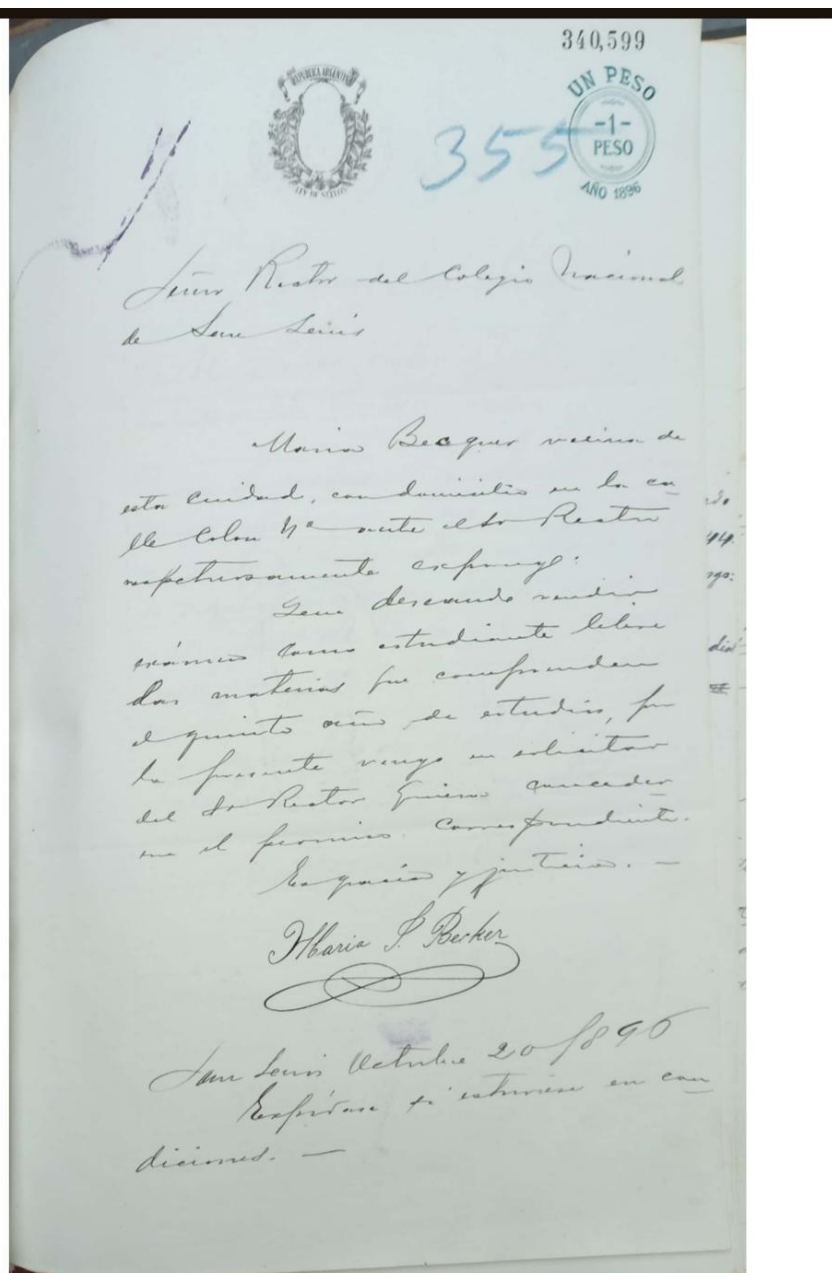 340,599
REPUBLICA ARGENTINA
LEY DE SELLOS
UN PESO
-1-
PESO
AÑO 1896
355
Señor Rector del Colegio Nacional
de San Luis
Maria Becquer vecina de
esta ciudad, con domicilio en la ca
lle Colon Nº ante el Sr Rector
respetuosamente expongo:
Que deseando rendir
exámen como estudiante libre
las materias que comprenden
el quinto año de estudios, por
la presente vengo en solicitar
del Sr Rector quiera conceder
me el permiso correspondiente.
Es gracia y justicia. —
Maria S. Becker
San Luis Octubre 20/896
Expídase si estuviese en con
diciones. —